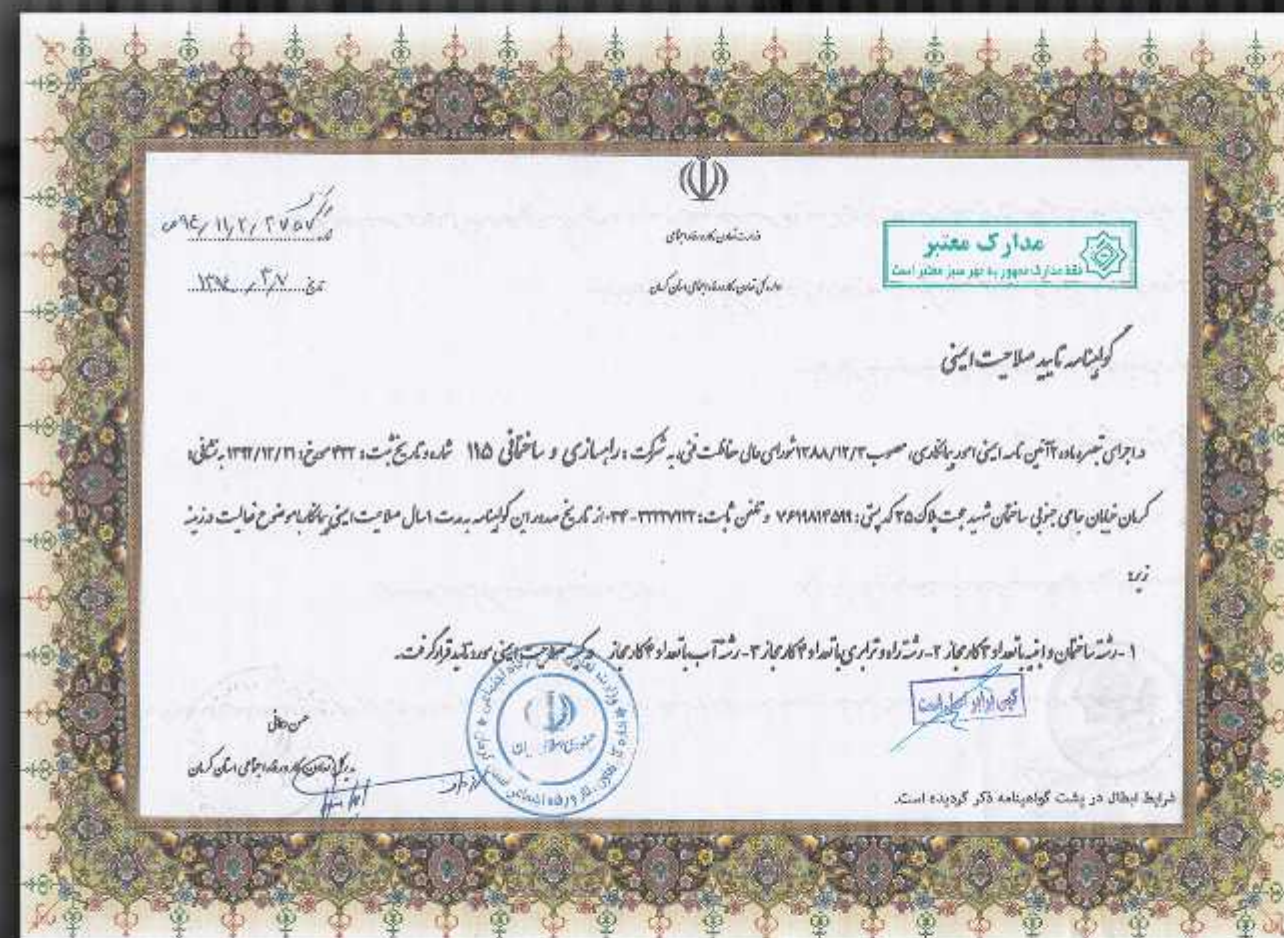 وزارت تعاون، کار و رفاه اجتماعی
اداره کل تعاون، کار و رفاه اجتماعی استان کرمان
تاریخ
مدارک معتبر
فقط مدارک ممهور به مهر سبز معتبر است
گواهینامه تایید صلاحیت ایمنی
در اجرای تبصره ماده ۲ آیین نامه ایمنی امور پیمانکاری، مصوب ۱۳۸۸/۱۲/۳ شورای عالی حفاظت فنی، به شرکت : راهسازی و ساختمانی ۱۱۵ شماره و تاریخ ثبت: ۴۳۲ مورخ: به نشانی:
کرمان خیابان جنوبی ساختمان شهید حجت پلاک ۲۵ کد پستی: و تلفن ثابت: از تاریخ صدور این گواهینامه به مدت ۱ سال صلاحیت ایمنی پیمانکار با موضوع فعالیت در زمینه
زیر:
۱- رشته ساختمان و ابنیه با تعداد ۲ کار مجاز ۲- رشته راه و ترابری با تعداد ۲ کار مجاز ۳- رشته آب با تعداد ۲ کار مجاز صلاحیت ایمنی مورد تایید قرار گرفت.
کپی برابر اصل است
مدیر کل تعاون، کار و رفاه اجتماعی استان کرمان
شرایط ابطال در پشت گواهینامه ذکر گردیده است.